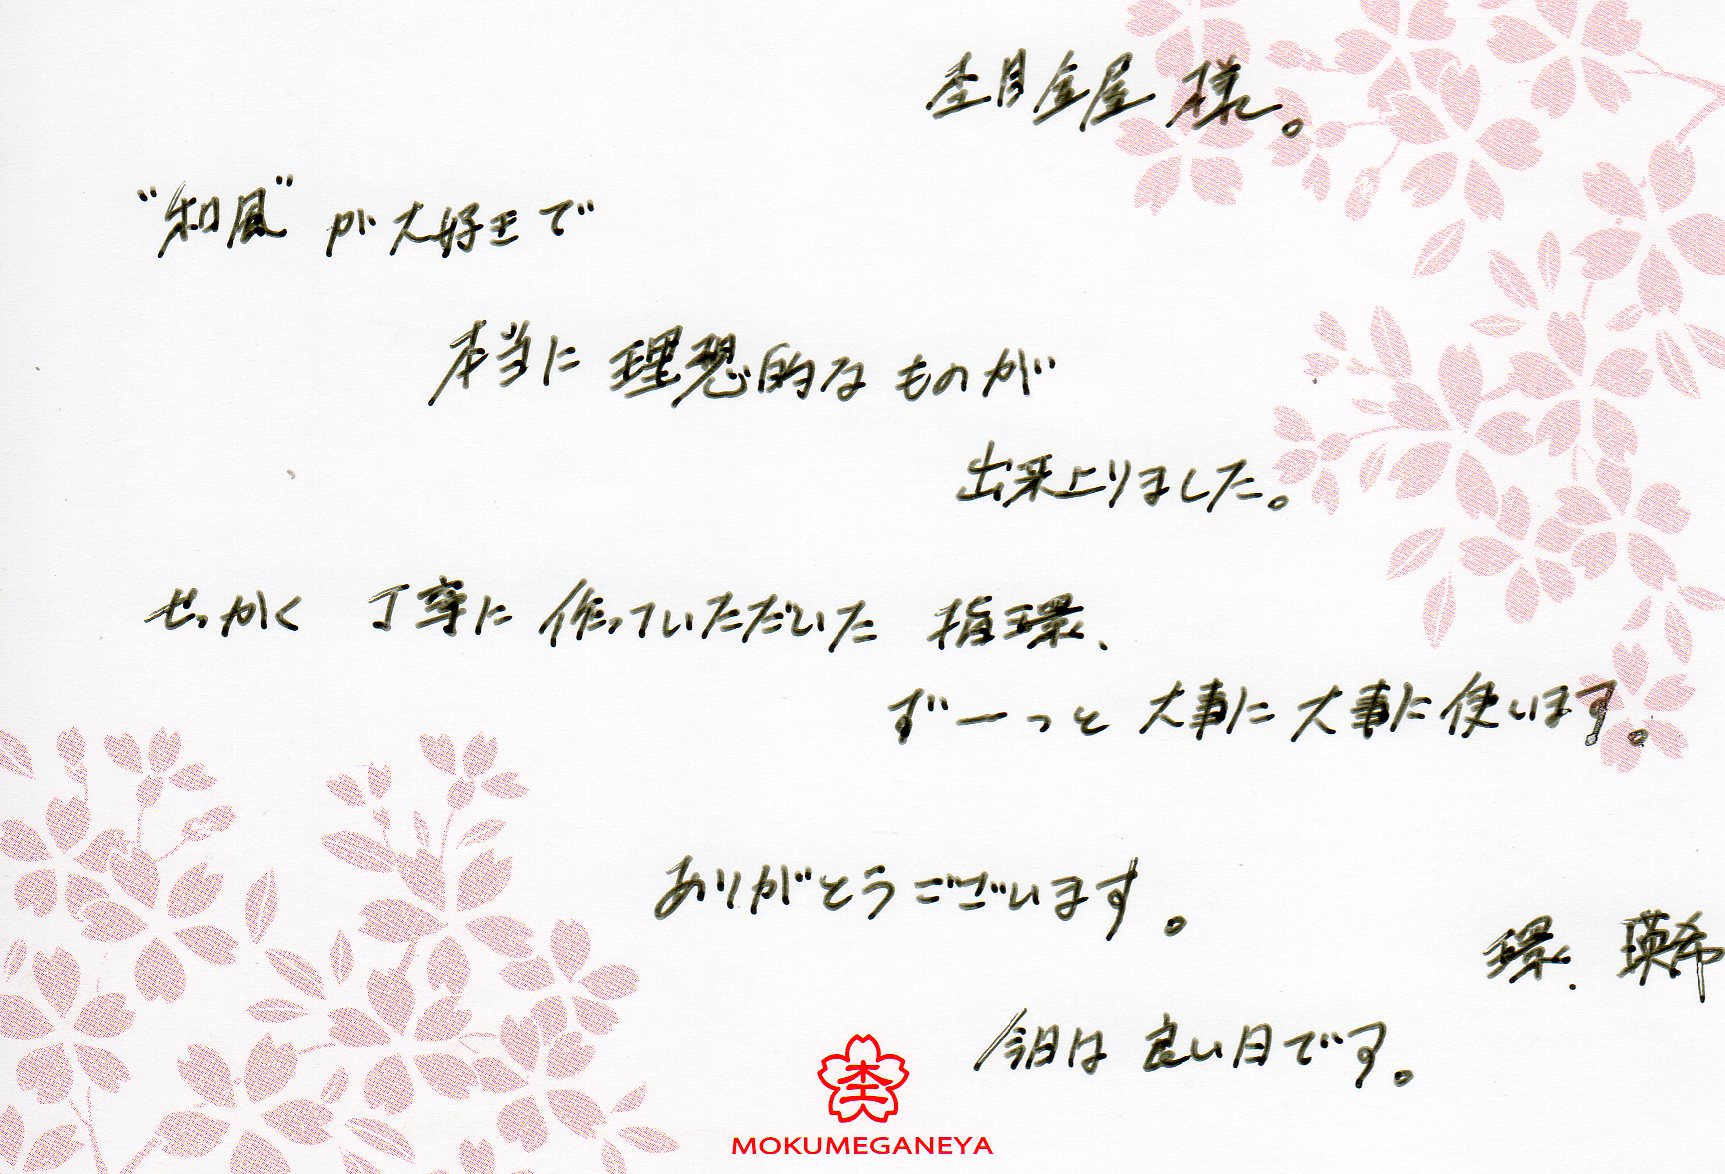 杢目金屋 様。
"和風" が大好きで
本当に 理想的な ものが
出来上りました。
せっかく 丁寧に 作っていただいた 指環、
ずーっと 大事に 大事に 使います。
ありがとうございます。
環、瑛希
今日は 良い日です。
杢
MOKUMEGANEYA